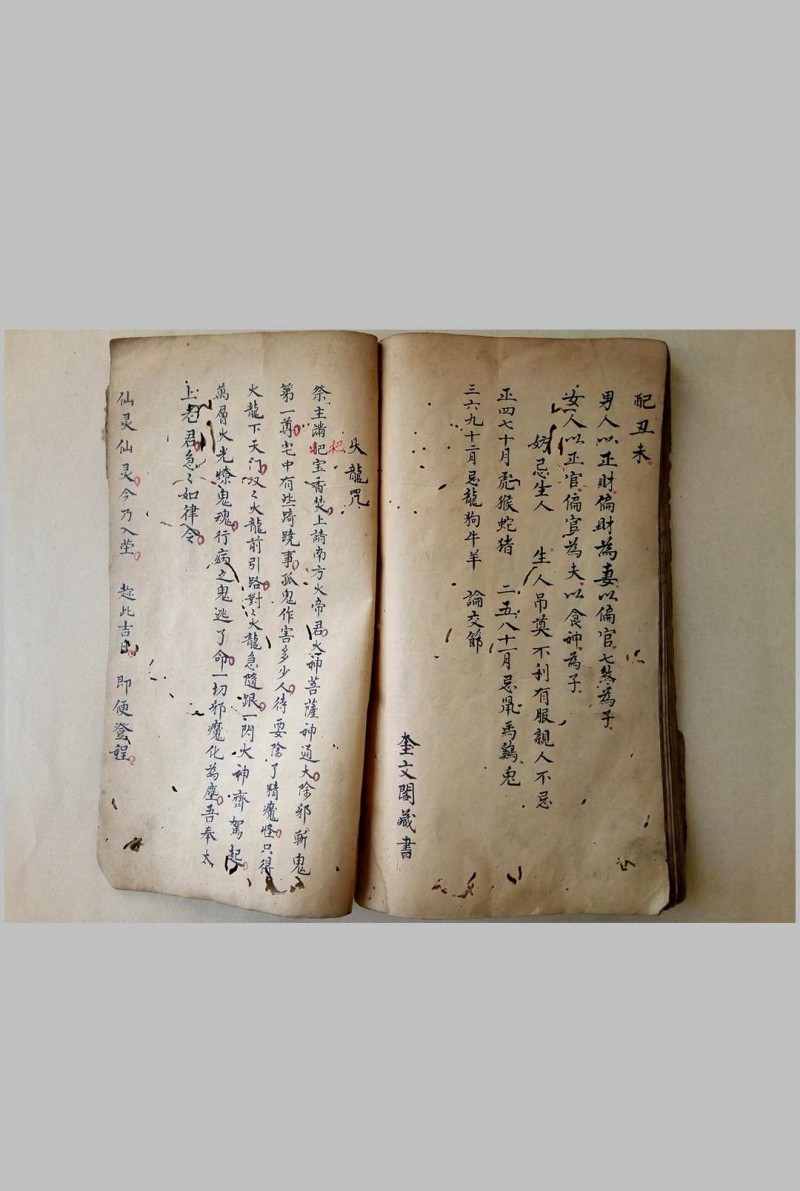 配丑未
男人以正財偏財為妻以偏官七煞為子
女人以正官偏官為夫以食神為子
妨忌生人 生人吊奠不利有服親人不忌
正四七十月 虎猴蛇猪 二五八十一月忌鼠馬鷄兔
三六九十二月忌龍狗牛羊 論交節
奎文閣藏書
火龍咒
祭主满把宝香焚上請南方火帝君火神菩薩神通大除邪斬鬼
第一尊宅中有些蹊蹺事孤鬼作害多少人待要除了精魔怪只得
火龍下天门双〻火龍前引路對〻火龍急隨跟一閃火神齊駕起
萬層火光燎鬼魂行病之鬼逃了命一切邪魔化為塵吾奉太
上老君急〻如律令
仙灵仙灵今乃入堂 趁此吉日 即便登程